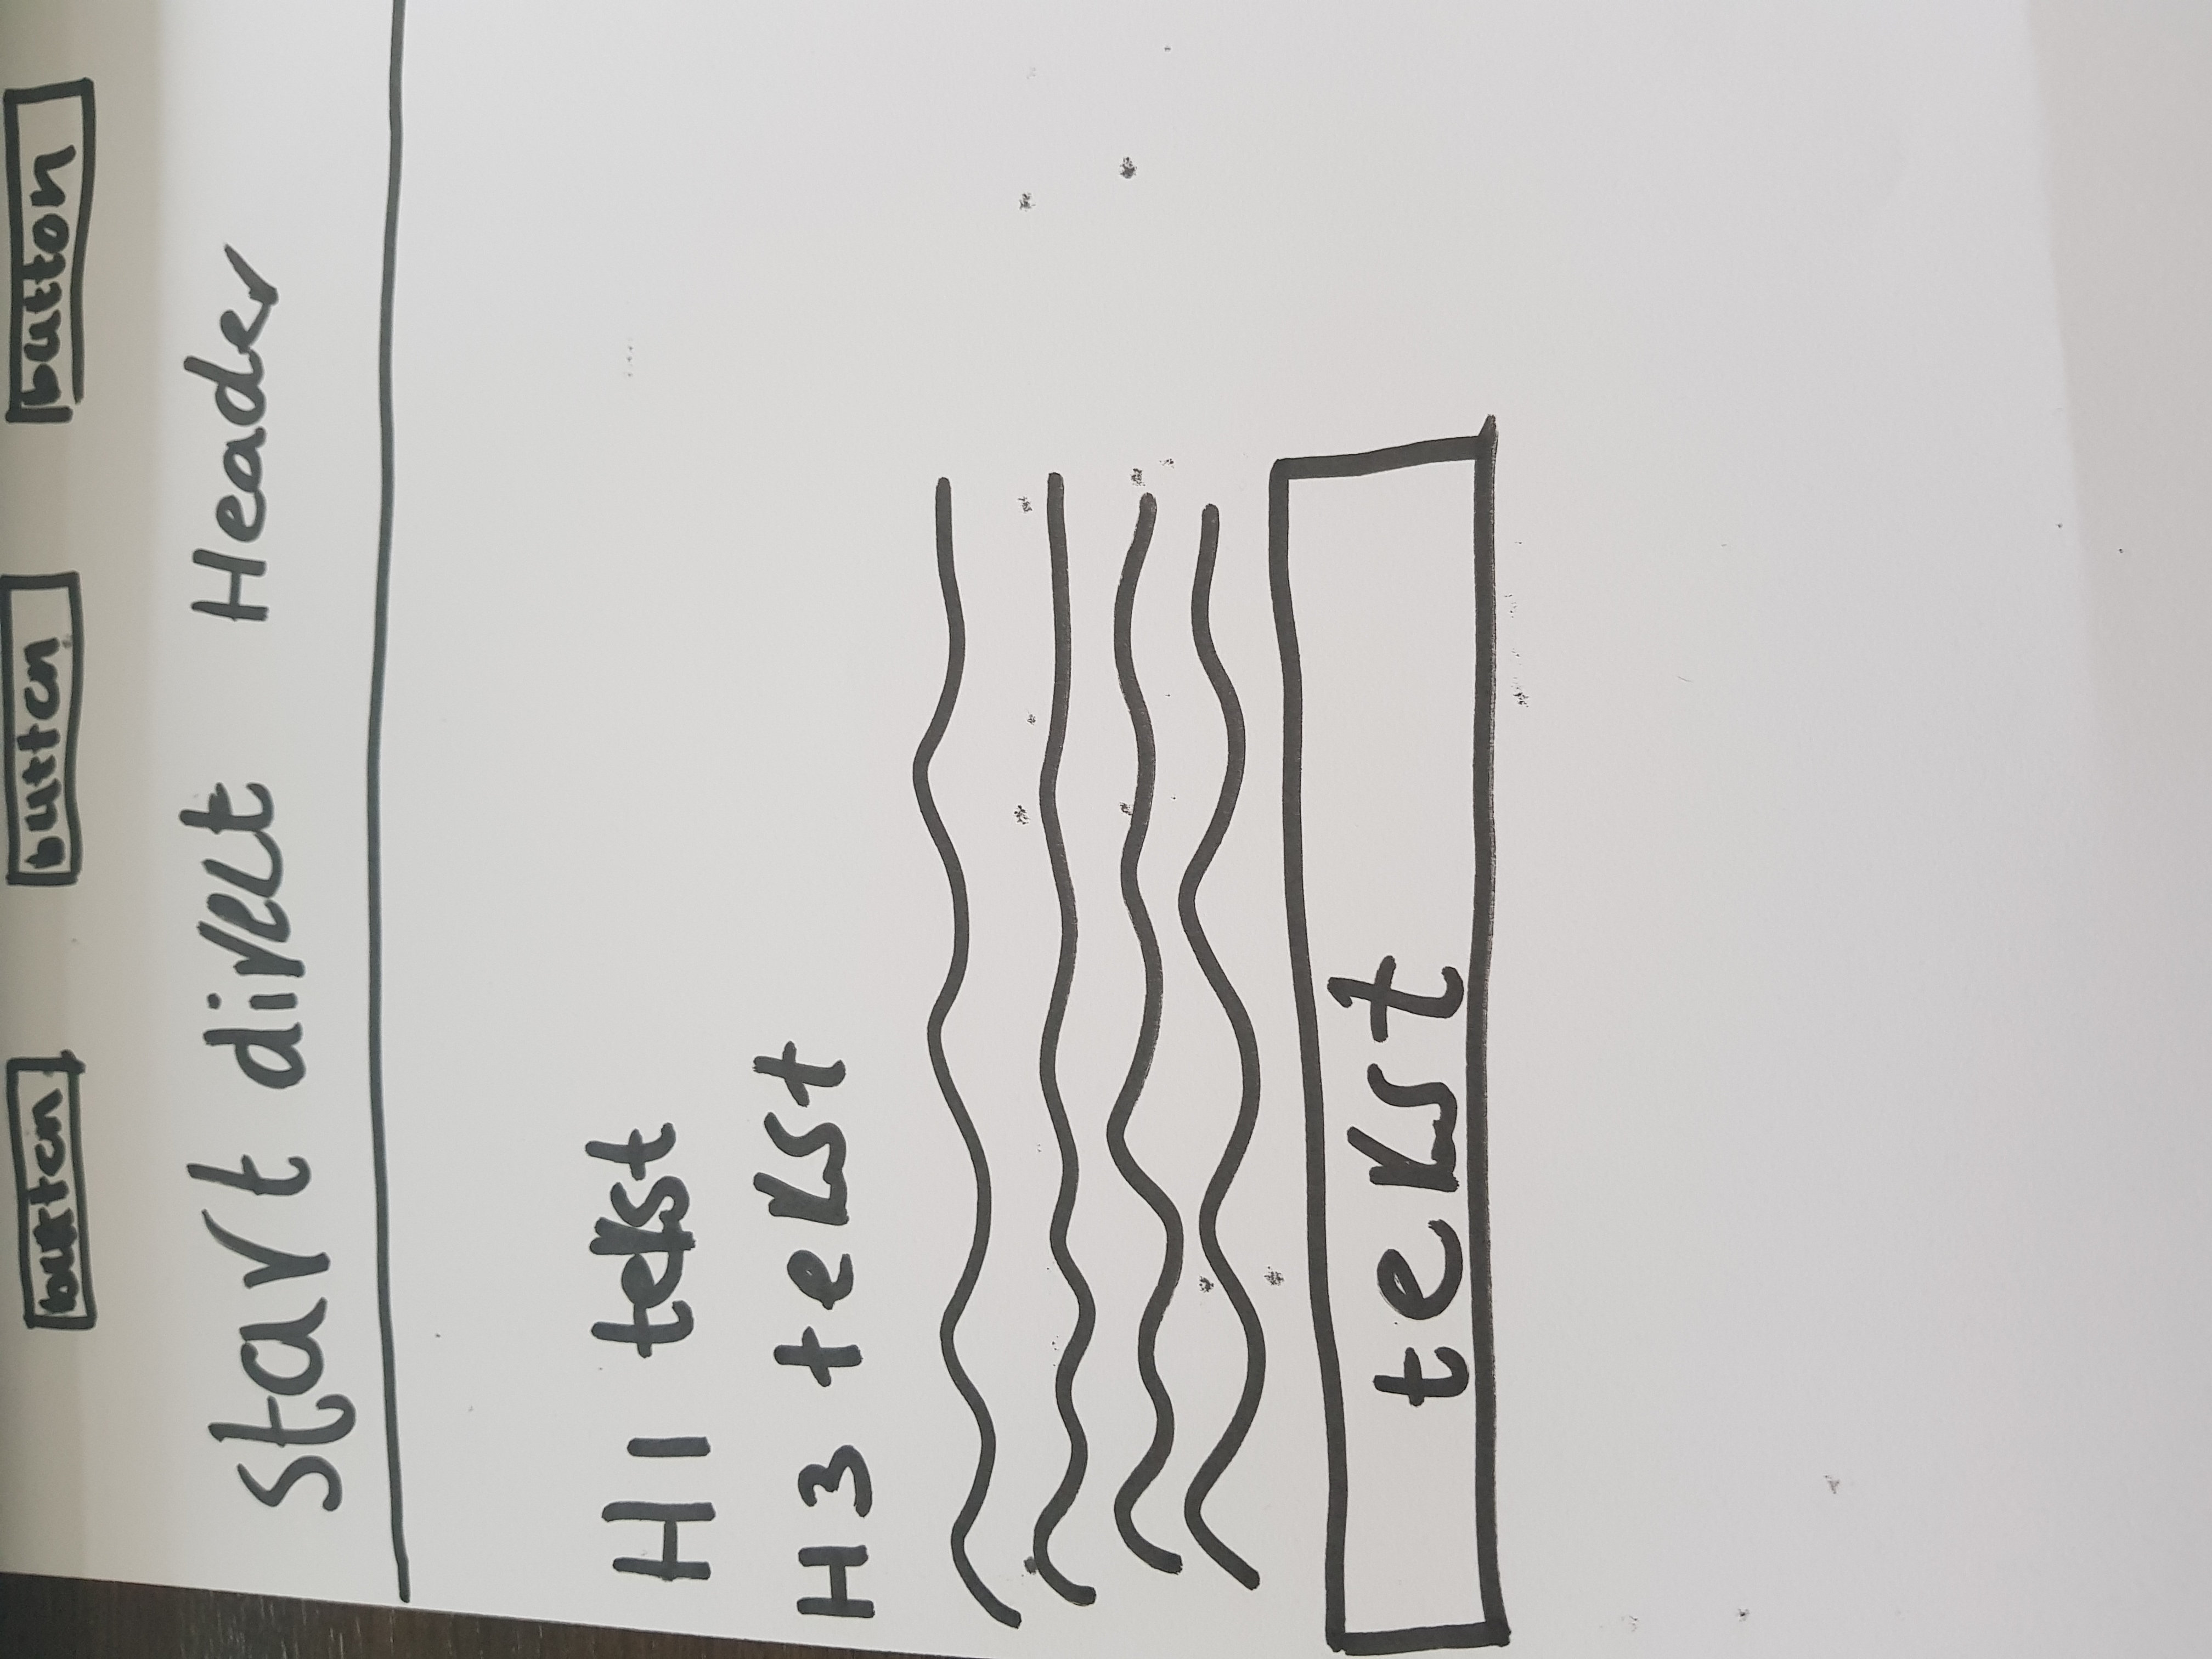 button button button
start direct Header
H1 tekst
H3 tekst
tekst